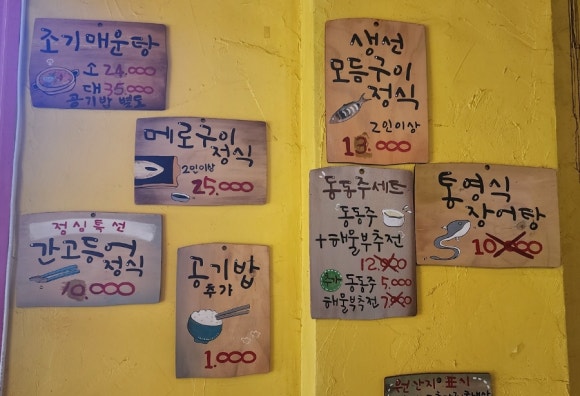 조기매운탕
소 24,000
대 35,000
공기밥 별도
메로구이
정식
2인이상
25,000
점심특선
간고등어
정식
10,000
공기밥
추가
1,000
생선
모듬구이
정식
2인이상
13,000
동동주세트
동동주
+해물부추전
12,000
추가 동동주 5,000
해물부추전 7,000
통영식
장어탕
10,000
원산지 표시